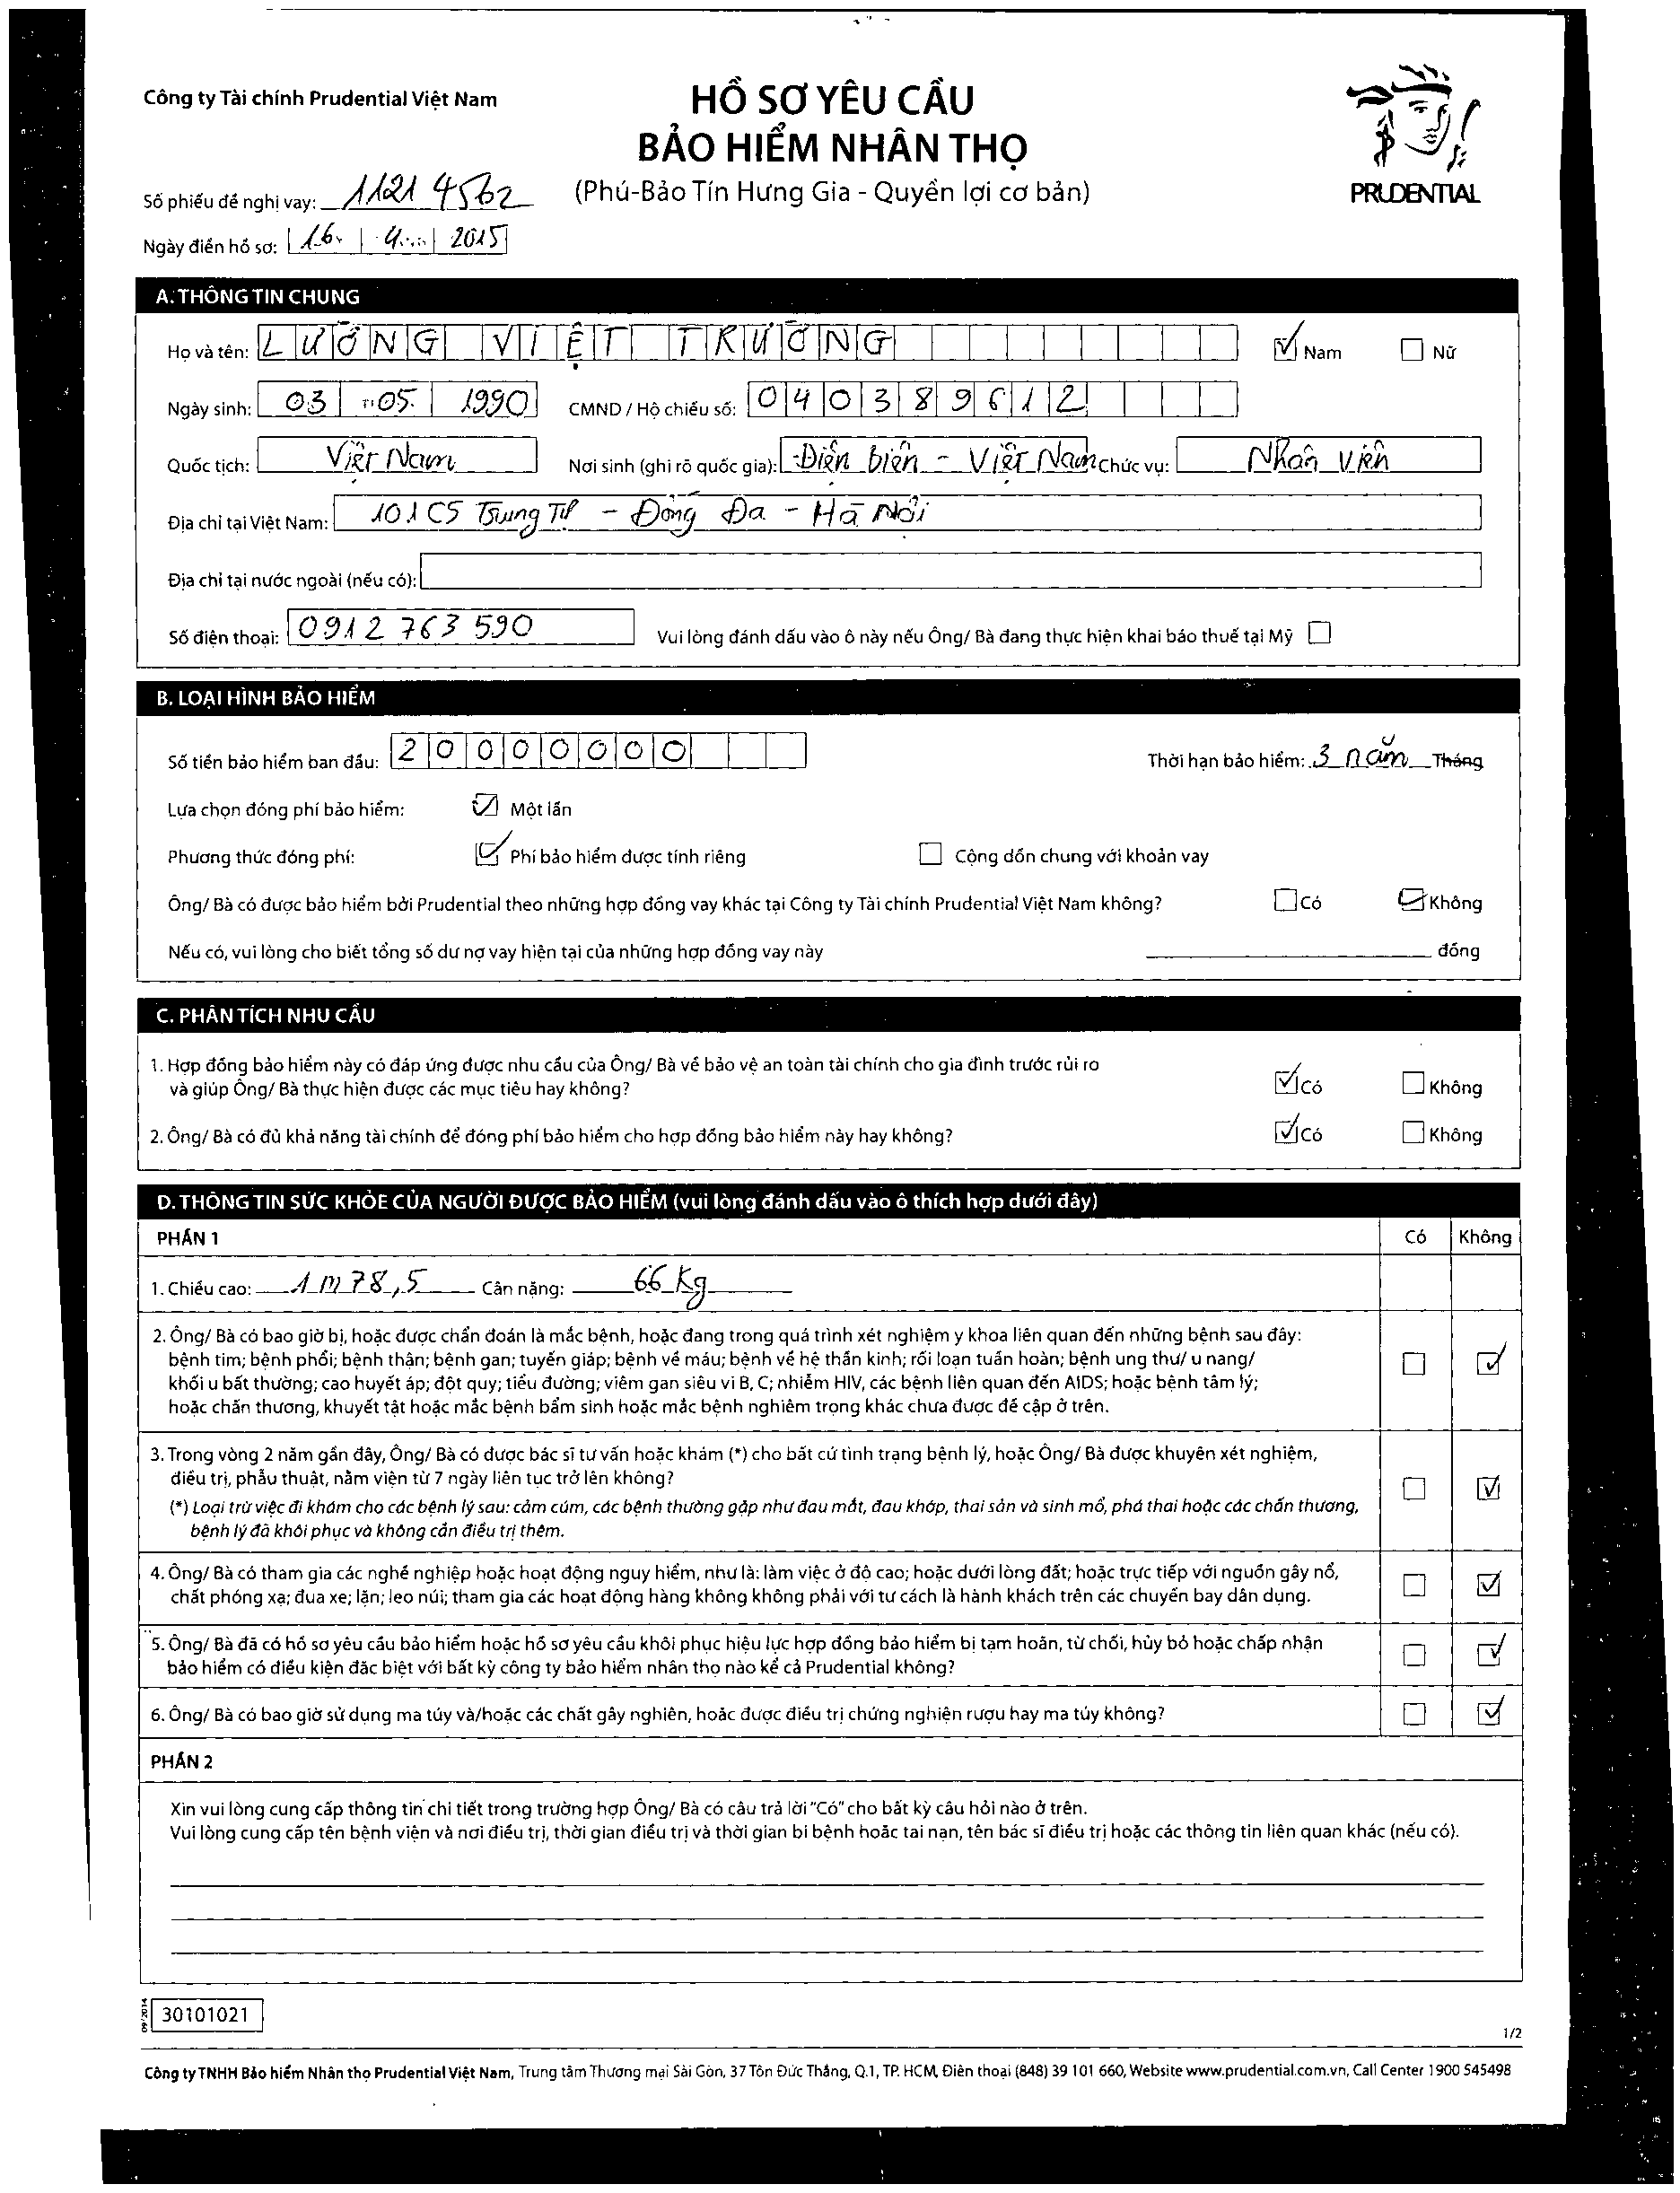 Công ty Tài chính Prudential Việt Nam
HỒ SƠ YÊU CẦU
BẢO HIỂM NHÂN THỌ
(Phú-Bảo Tín Hưng Gia - Quyền lợi cơ bản)
PRUDENTIAL
Số phiếu đề nghị vay: 11214562
Ngày điền hồ sơ: 16 4 2015
A. THÔNG TIN CHUNG
Họ và tên: LƯỜNG VIỆT TRƯỜNG Nam Nữ
Ngày sinh: 03 05 1990 CMND / Hộ chiếu số: 040389612
Quốc tịch: Việt Nam Nơi sinh (ghi rõ quốc gia): Điện biên - Việt Nam Chức vụ: Nhân viên
Địa chỉ tại Việt Nam: 101 C5 Trung Tự - Đống Đa - Hà Nội
Địa chỉ tại nước ngoài (nếu có):
Số điện thoại: 0912 763 590 Vui lòng đánh dấu vào ô này nếu Ông/ Bà đang thực hiện khai báo thuế tại Mỹ
B. LOẠI HÌNH BẢO HIỂM
Số tiền bảo hiểm ban đầu: 20000000 Thời hạn bảo hiểm: 3 năm Tháng
Lựa chọn đóng phí bảo hiểm: Một lần
Phương thức đóng phí: Phí bảo hiểm được tính riêng Cộng dồn chung với khoản vay
Ông/ Bà có được bảo hiểm bởi Prudential theo những hợp đồng vay khác tại Công ty Tài chính Prudential Việt Nam không? Có Không
Nếu có, vui lòng cho biết tổng số dư nợ vay hiện tại của những hợp đồng vay này đồng
C. PHÂN TÍCH NHU CẦU
1. Hợp đồng bảo hiểm này có đáp ứng được nhu cầu của Ông/ Bà về bảo vệ an toàn tài chính cho gia đình trước rủi ro
và giúp Ông/ Bà thực hiện được các mục tiêu hay không? Có Không
2. Ông/ Bà có đủ khả năng tài chính để đóng phí bảo hiểm cho hợp đồng bảo hiểm này hay không? Có Không
D. THÔNG TIN SỨC KHỎE CỦA NGƯỜI ĐƯỢC BẢO HIỂM (vui lòng đánh dấu vào ô thích hợp dưới đây)
PHẦN 1 Có Không
1. Chiều cao: 1m78,5 Cân nặng: 66 Kg
2. Ông/ Bà có bao giờ bị, hoặc được chẩn đoán là mắc bệnh, hoặc đang trong quá trình xét nghiệm y khoa liên quan đến những bệnh sau đây:
bệnh tim; bệnh phổi; bệnh thận; bệnh gan; tuyến giáp; bệnh về máu; bệnh về hệ thần kinh; rối loạn tuần hoàn; bệnh ung thư/ u nang/
khối u bất thường; cao huyết áp; đột quỵ; tiểu đường; viêm gan siêu vi B, C; nhiễm HIV, các bệnh liên quan đến AIDS; hoặc bệnh tâm lý;
hoặc chấn thương, khuyết tật hoặc mắc bệnh bẩm sinh hoặc mắc bệnh nghiêm trọng khác chưa được đề cập ở trên.
3. Trong vòng 2 năm gần đây, Ông/ Bà có được bác sĩ tư vấn hoặc khám (*) cho bất cứ tình trạng bệnh lý, hoặc Ông/ Bà được khuyên xét nghiệm,
điều trị, phẫu thuật, nằm viện từ 7 ngày liên tục trở lên không?
(*) Loại trừ việc đi khám cho các bệnh lý sau: cảm cúm, các bệnh thường gặp như đau mắt, đau khớp, thai sản và sinh mổ, phá thai hoặc các chấn thương,
bệnh lý đã khôi phục và không cần điều trị thêm.
4. Ông/ Bà có tham gia các nghề nghiệp hoặc hoạt động nguy hiểm, như là: làm việc ở độ cao; hoặc dưới lòng đất; hoặc trực tiếp với nguồn gây nổ,
chất phóng xạ; đua xe; lặn; leo núi; tham gia các hoạt động hàng không không phải với tư cách là hành khách trên các chuyến bay dân dụng.
5. Ông/ Bà đã có hồ sơ yêu cầu bảo hiểm hoặc hồ sơ yêu cầu khôi phục hiệu lực hợp đồng bảo hiểm bị tạm hoãn, từ chối, hủy bỏ hoặc chấp nhận
bảo hiểm có điều kiện đặc biệt với bất kỳ công ty bảo hiểm nhân thọ nào kể cả Prudential không?
6. Ông/ Bà có bao giờ sử dụng ma túy và/hoặc các chất gây nghiện, hoặc được điều trị chứng nghiện rượu hay ma túy không?
PHẦN 2
Xin vui lòng cung cấp thông tin chi tiết trong trường hợp Ông/ Bà có câu trả lời "Có" cho bất kỳ câu hỏi nào ở trên.
Vui lòng cung cấp tên bệnh viện và nơi điều trị, thời gian điều trị và thời gian bị bệnh hoặc tai nạn, tên bác sĩ điều trị hoặc các thông tin liên quan khác (nếu có).
09/2014
30101021
1/2
Công ty TNHH Bảo hiểm Nhân thọ Prudential Việt Nam, Trung tâm Thương mại Sài Gòn, 37 Tôn Đức Thắng, Q.1, TP. HCM, Điện thoại (848) 39 101 660, Website www.prudential.com.vn, Call Center 1900 545498